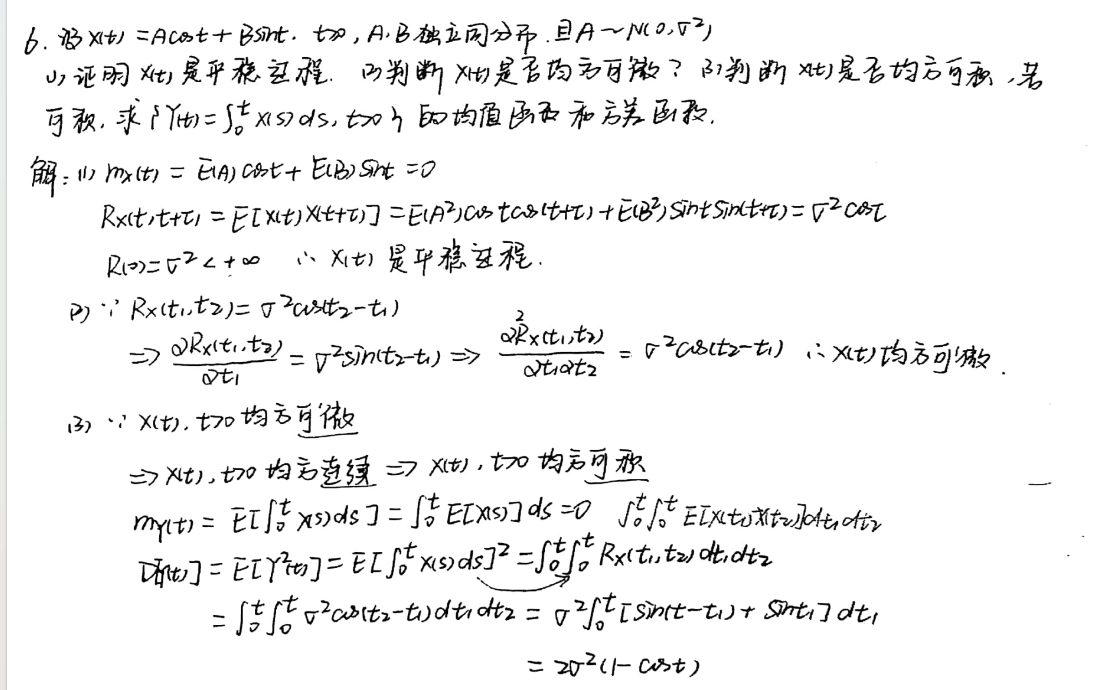 6. 设X(t)=Acost+Bsint. t>0, A.B独立同分布.且A~N(0,σ²)
(1)证明X(t)是平稳过程. (2)判断X(t)是否均方可微? (3)判断X(t)是否均方可积,若
可积,求{Y(t)=∫₀ᵗX(s)ds, t>0}的均值函数和方差函数.
解:(1) mx(t)=E(A)cost+E(B)sint=0
Rx(t,t+τ)=E[X(t)X(t+τ)]=E(A²)costcos(t+τ)+E(B²)sintsin(t+τ)=σ²cosτ
R(0)=σ²<+∞ ∴X(t)是平稳过程.
(2) ∵Rx(t₁,t₂)=σ²cos(t₂-t₁)
⇒ ∂Rx(t₁,t₂)/∂t₁=σ²sin(t₂-t₁) ⇒ ∂²Rx(t₁,t₂)/∂t₁∂t₂=σ²cos(t₂-t₁) ∴X(t)均方可微.
(3) ∵X(t),t>0均方可微
⇒X(t),t>0均方连续⇒X(t),t>0均方可积
my(t)=E[∫₀ᵗX(s)ds]=∫₀ᵗE[X(s)]ds=0 ∫₀ᵗ∫₀ᵗE[X(t₁)X(t₂)]dt₁dt₂
D[Y(t)]=E[Y²(t)]=E[∫₀ᵗX(s)ds]²=∫₀ᵗ∫₀ᵗRx(t₁,t₂)dt₁dt₂
=∫₀ᵗ∫₀ᵗσ²cos(t₂-t₁)dt₁dt₂=σ²∫₀ᵗ[sin(t-t₁)+sint₁]dt₁
=2σ²(1-cost)